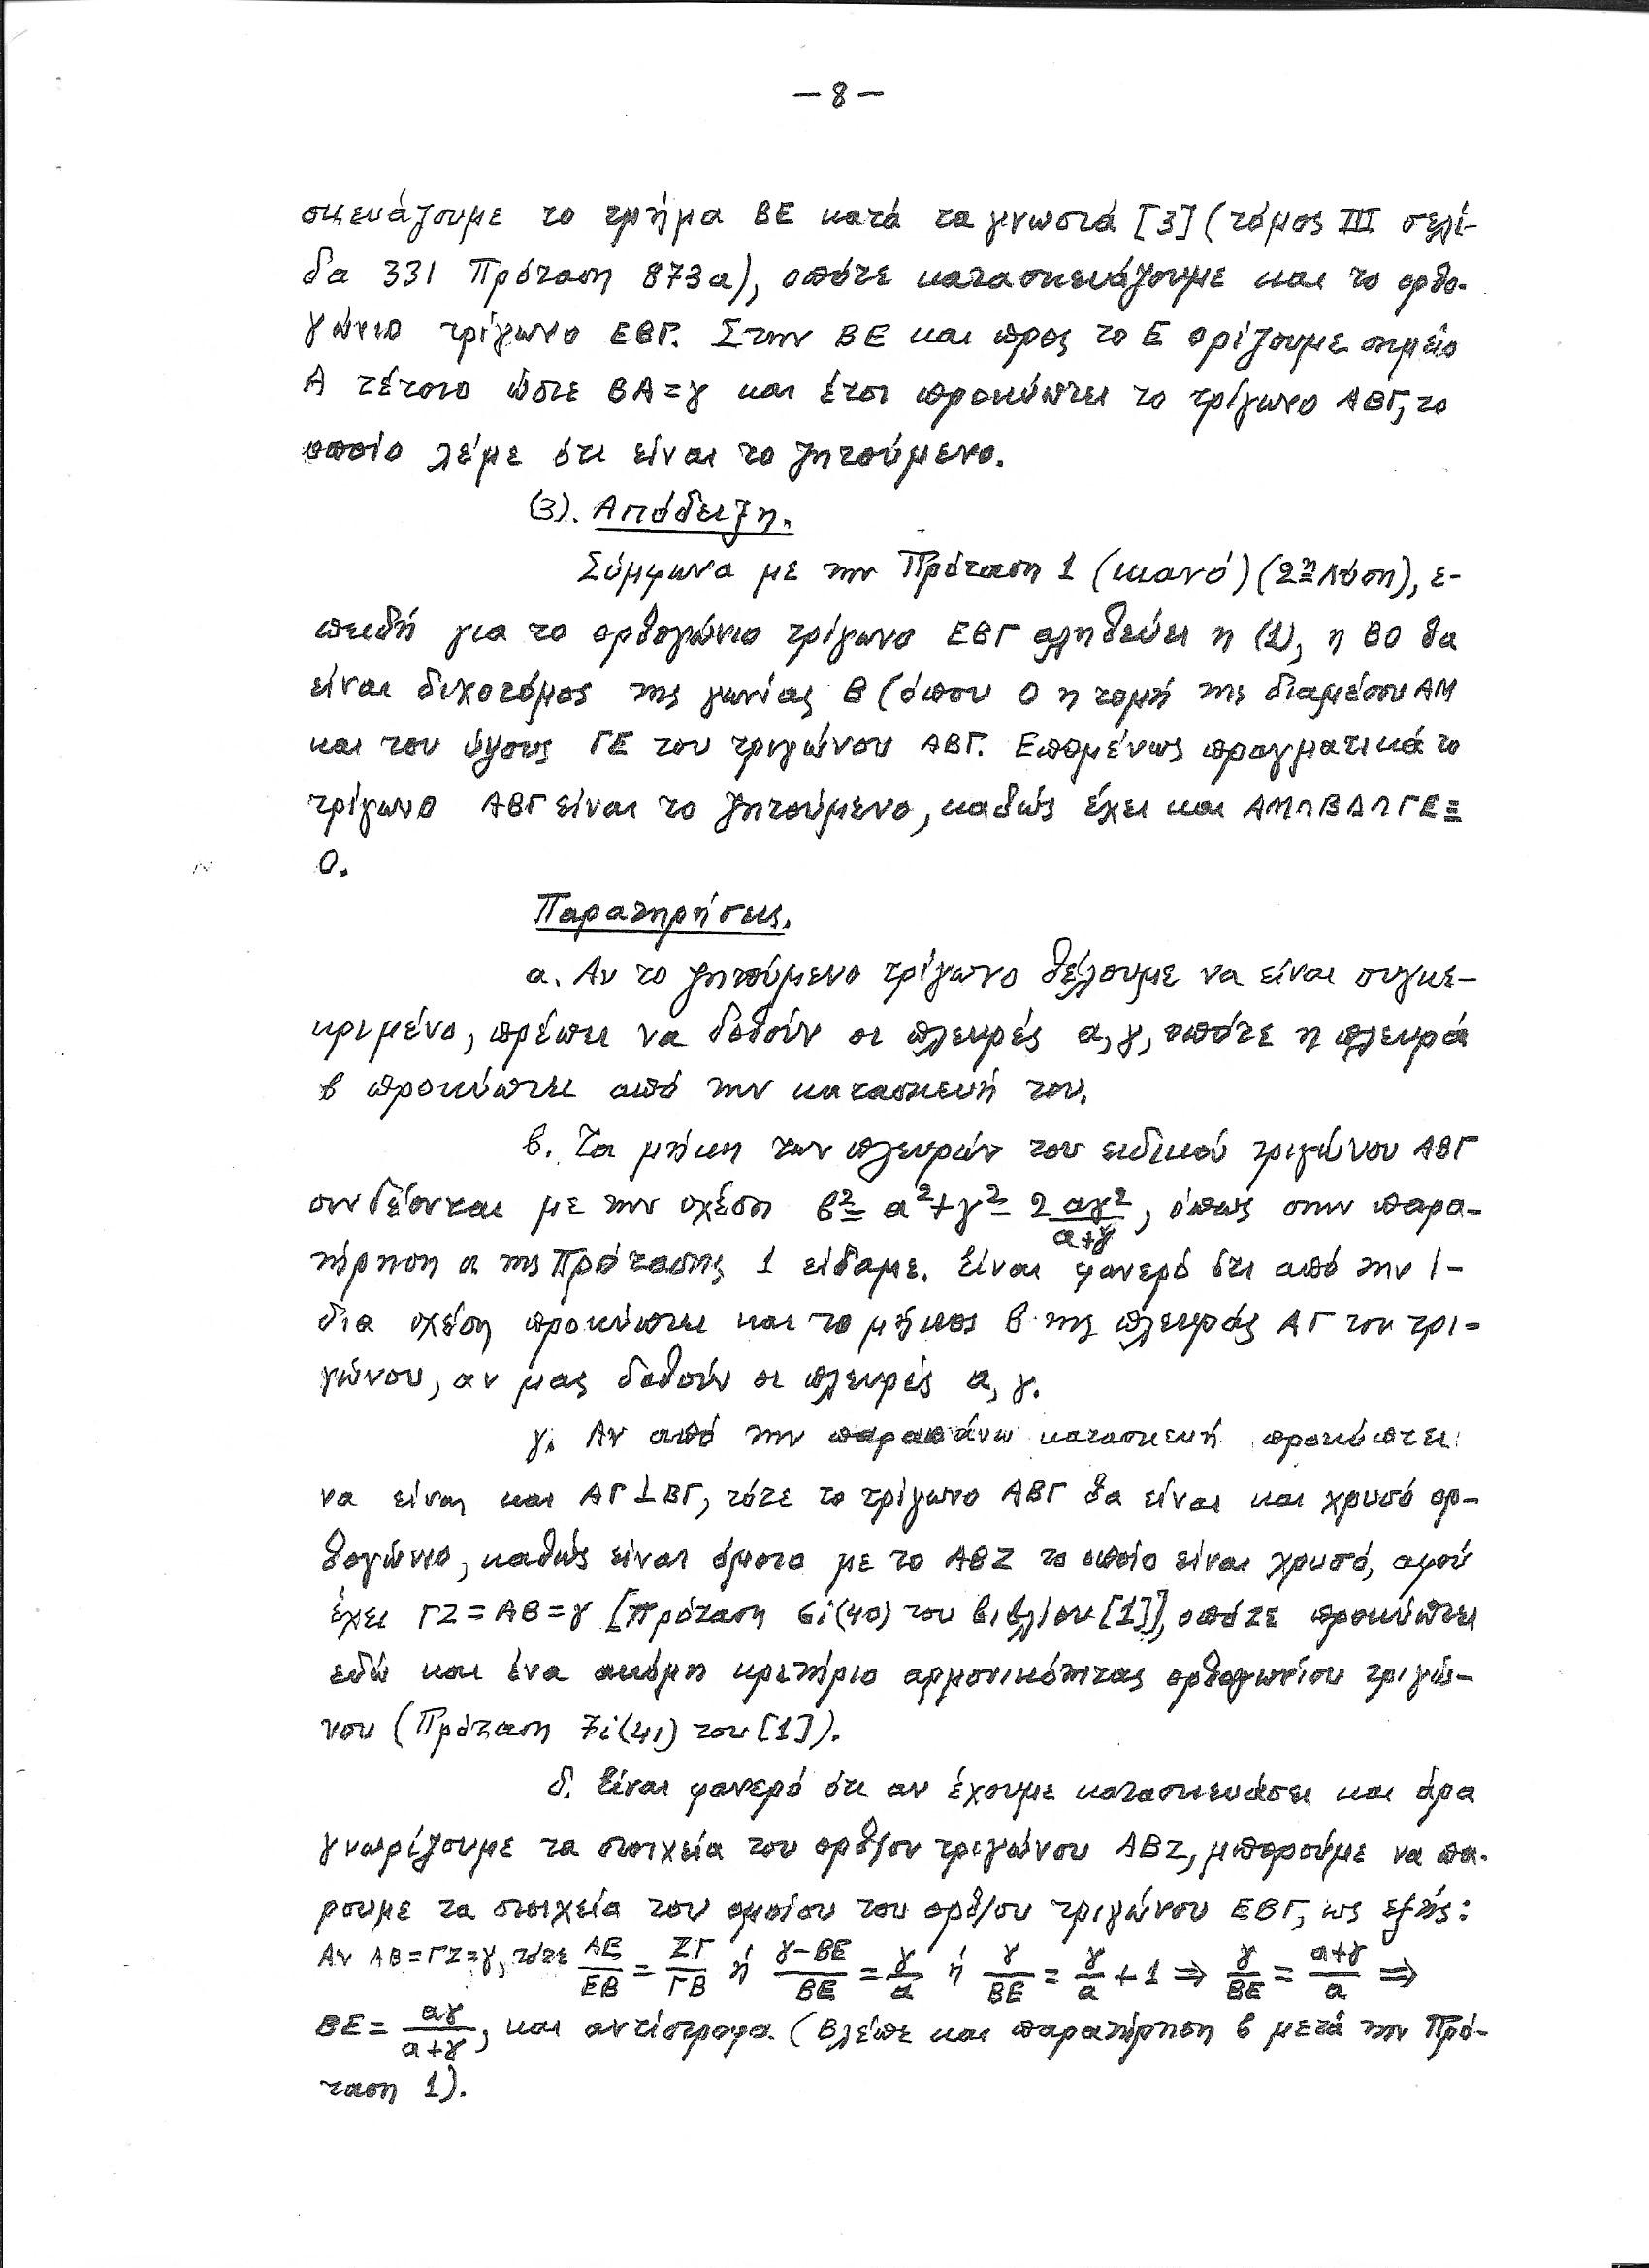 — 8 —
σκευάζουμε το τμήμα ΒΕ κατά τα γνωστά [3] (τόμος ΙΙΙ σελί-
δα 331 Πρόταση 873α), οπότε κατασκευάζουμε και το ορθο-
γώνιο τρίγωνο ΕΒΓ. Στην ΒΕ και προς το Ε ορίζουμε σημείο
Α τέτοιο ώστε ΒΑ=γ και έτσι προκύπτει το τρίγωνο ΑΒΓ, το
οποίο λέμε ότι είναι το ζητούμενο.
(3). Απόδειξη.
Σύμφωνα με την Πρόταση 1 (ικανό) (2η Λύση), ε-
πειδή για το ορθογώνιο τρίγωνο ΕΒΓ αληθεύει η (1), η ΒΟ θα
είναι διχοτόμος της γωνίας Β (όπου Ο η τομή της διαμέσου ΑΜ
και του ύψους ΓΕ του τριγώνου ΑΒΓ. Επομένως πραγματικά το
τρίγωνο ΑΒΓ είναι το ζητούμενο, καθώς έχει και ΑΜ∩ΒΔ∩ΓΕ≡
Ο.
Παρατηρήσεις.
α. Αν το ζητούμενο τρίγωνο θέλουμε να είναι συγκε-
κριμένο, πρέπει να δοθούν οι πλευρές α, γ, οπότε η πλευρά
β προκύπτει από την κατασκευή του.
β. Τα μήκη των πλευρών του ειδικού τριγώνου ΑΒΓ
συνδέονται με την σχέση β²= α²+γ²- 2 αγ²/(α+γ), όπως στην παρα-
τήρηση α της Πρότασης 1 είδαμε. Είναι φανερό ότι από την ί-
δια σχέση προκύπτει και το μήκος β της πλευράς ΑΓ του τρι-
γώνου, αν μας δοθούν οι πλευρές α, γ.
γ. Αν από την παραπάνω κατασκευή προκύπτει
να είναι και ΑΓ⊥ΒΓ, τότε το τρίγωνο ΑΒΓ θα είναι και χρυσό ορ-
θογώνιο, καθώς είναι όμοιο με το ΑΒΖ το οποίο είναι χρυσό, αφού
έχει ΓΖ=ΑΒ=γ [Πρόταση 6i(40) του βιβλίου [1]], οπότε προκύπτει
εδώ και ένα ακόμη κριτήριο αρμονικότητας ορθογωνίου τριγώ-
νου (Πρόταση 7i(41) του [1]).
δ. Είναι φανερό ότι αν έχουμε κατασκευάσει και άρα
γνωρίζουμε τα στοιχεία του ορθ/ου τριγώνου ΑΒΖ, μπορούμε να πά-
ρουμε τα στοιχεία του ομοίου του ορθ/ου τριγώνου ΕΒΓ, ως εξής:
Αν ΑΒ=ΓΖ=γ, τότε ΑΕ/ΕΒ = ΖΓ/ΓΒ ή (γ-ΒΕ)/ΒΕ = γ/α ή γ/ΒΕ = γ/α + 1 ⇒ γ/ΒΕ = (α+γ)/α ⇒
ΒΕ = αγ/(α+γ), και αντίστροφα (Βλέπε και παρατήρηση β μετά την Πρό-
ταση 1).